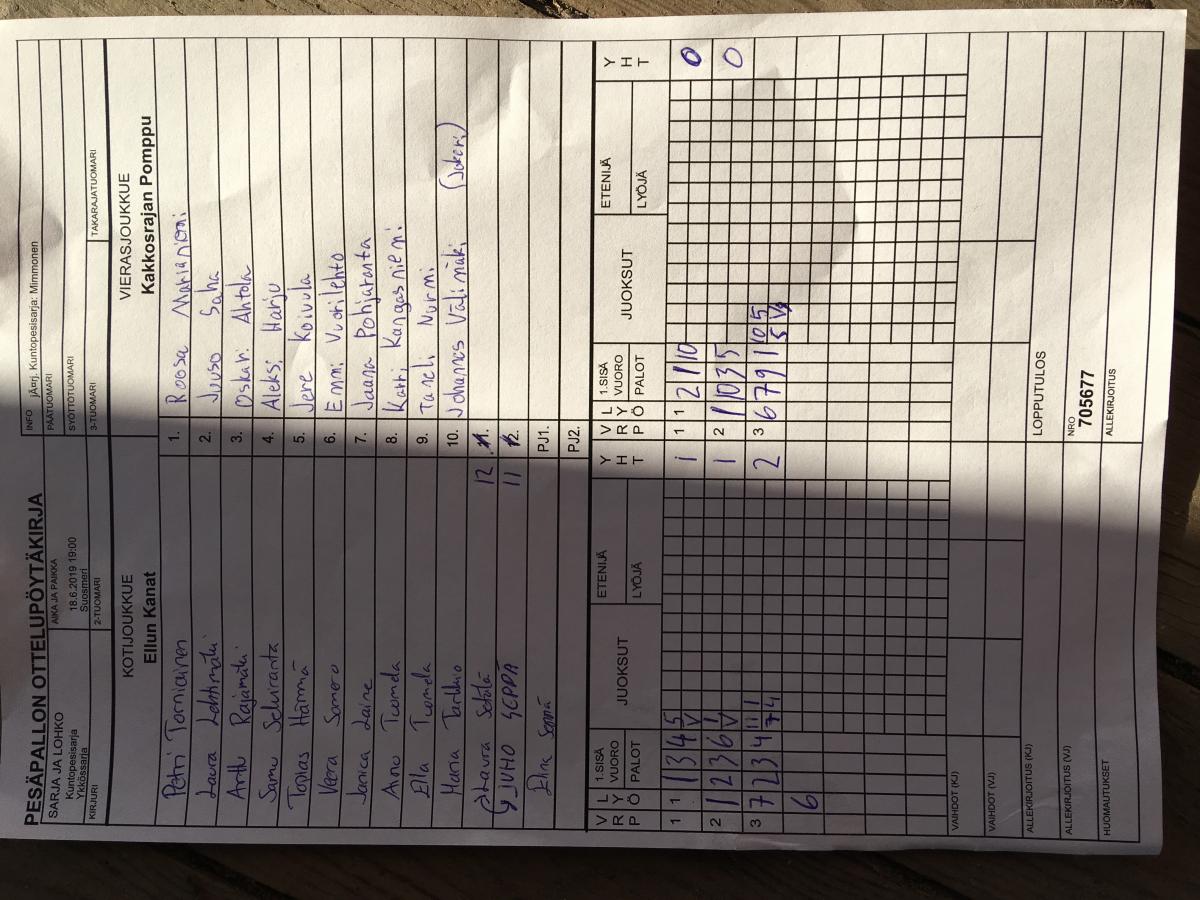 PESÄPALLON OTTELUPÖYTÄKIRJA
SARJA JA LOHKO
Kuntopesisarja
Ykkössarja
AIKA JA PAIKKA
18.6.2019 19:00
Suosmeri
INFO jÄrrj. Kuntopesisarja: Mimmonen
PÄÄTUOMARI
SYÖTTÖTUOMARI
KIRJURI
2-TUOMARI
3-TUOMARI
TAKARAJATUOMARI
KOTIJOUKKUE
Ellun Kanat
VIERASJOUKKUE
Kakkosrajan Pomppu
Petri Torniainen 1. Roosa Marianiemi
Laura Lehtimäki 2. Juuso Saha
Arttu Rajamäki 3. Oskari Ahtola
Samu Seluranta 4. Aleksi Harju
Topias Hämmä 5. Jere Koivula
Veera Somero 6. Emmi Vuorilehto
Janica Laine 7. Jaana Pohjaranta
Arno Tuomela 8. Katri Kangasniemi
Ella Tuomela 9. Taneli Nurmi
Maria Tarkkio 10. Johannes Välimäki (Jokeri)
Laura Setälä 12 11.
JUHO SEPPÄ 11 12.
Elina Seppä PJ1.
PJ2.
V R P L Y Ö 1.SISÄ VUORO PALOT JUOKSUT ETENIJÄ LYÖJÄ Y H T
V R P L Y Ö 1.SISÄ VUORO PALOT JUOKSUT ETENIJÄ LYÖJÄ Y H T
1 1 1 3 4 5 V 1
1 1 2 1 10 0
2 1 2 3 6 1 V 1
2 1 10 3 5 0
3 7 2 3 4 11 1 7 4 2
3 6 7 9 1 10 5 5 V
6
VAIHDOT (KJ)
VAIHDOT (VJ)
ALLEKIRJOITUS (KJ)
LOPPUTULOS
ALLEKIRJOITUS (VJ)
NRO
705677
HUOMAUTUKSET
ALLEKIRJOITUS